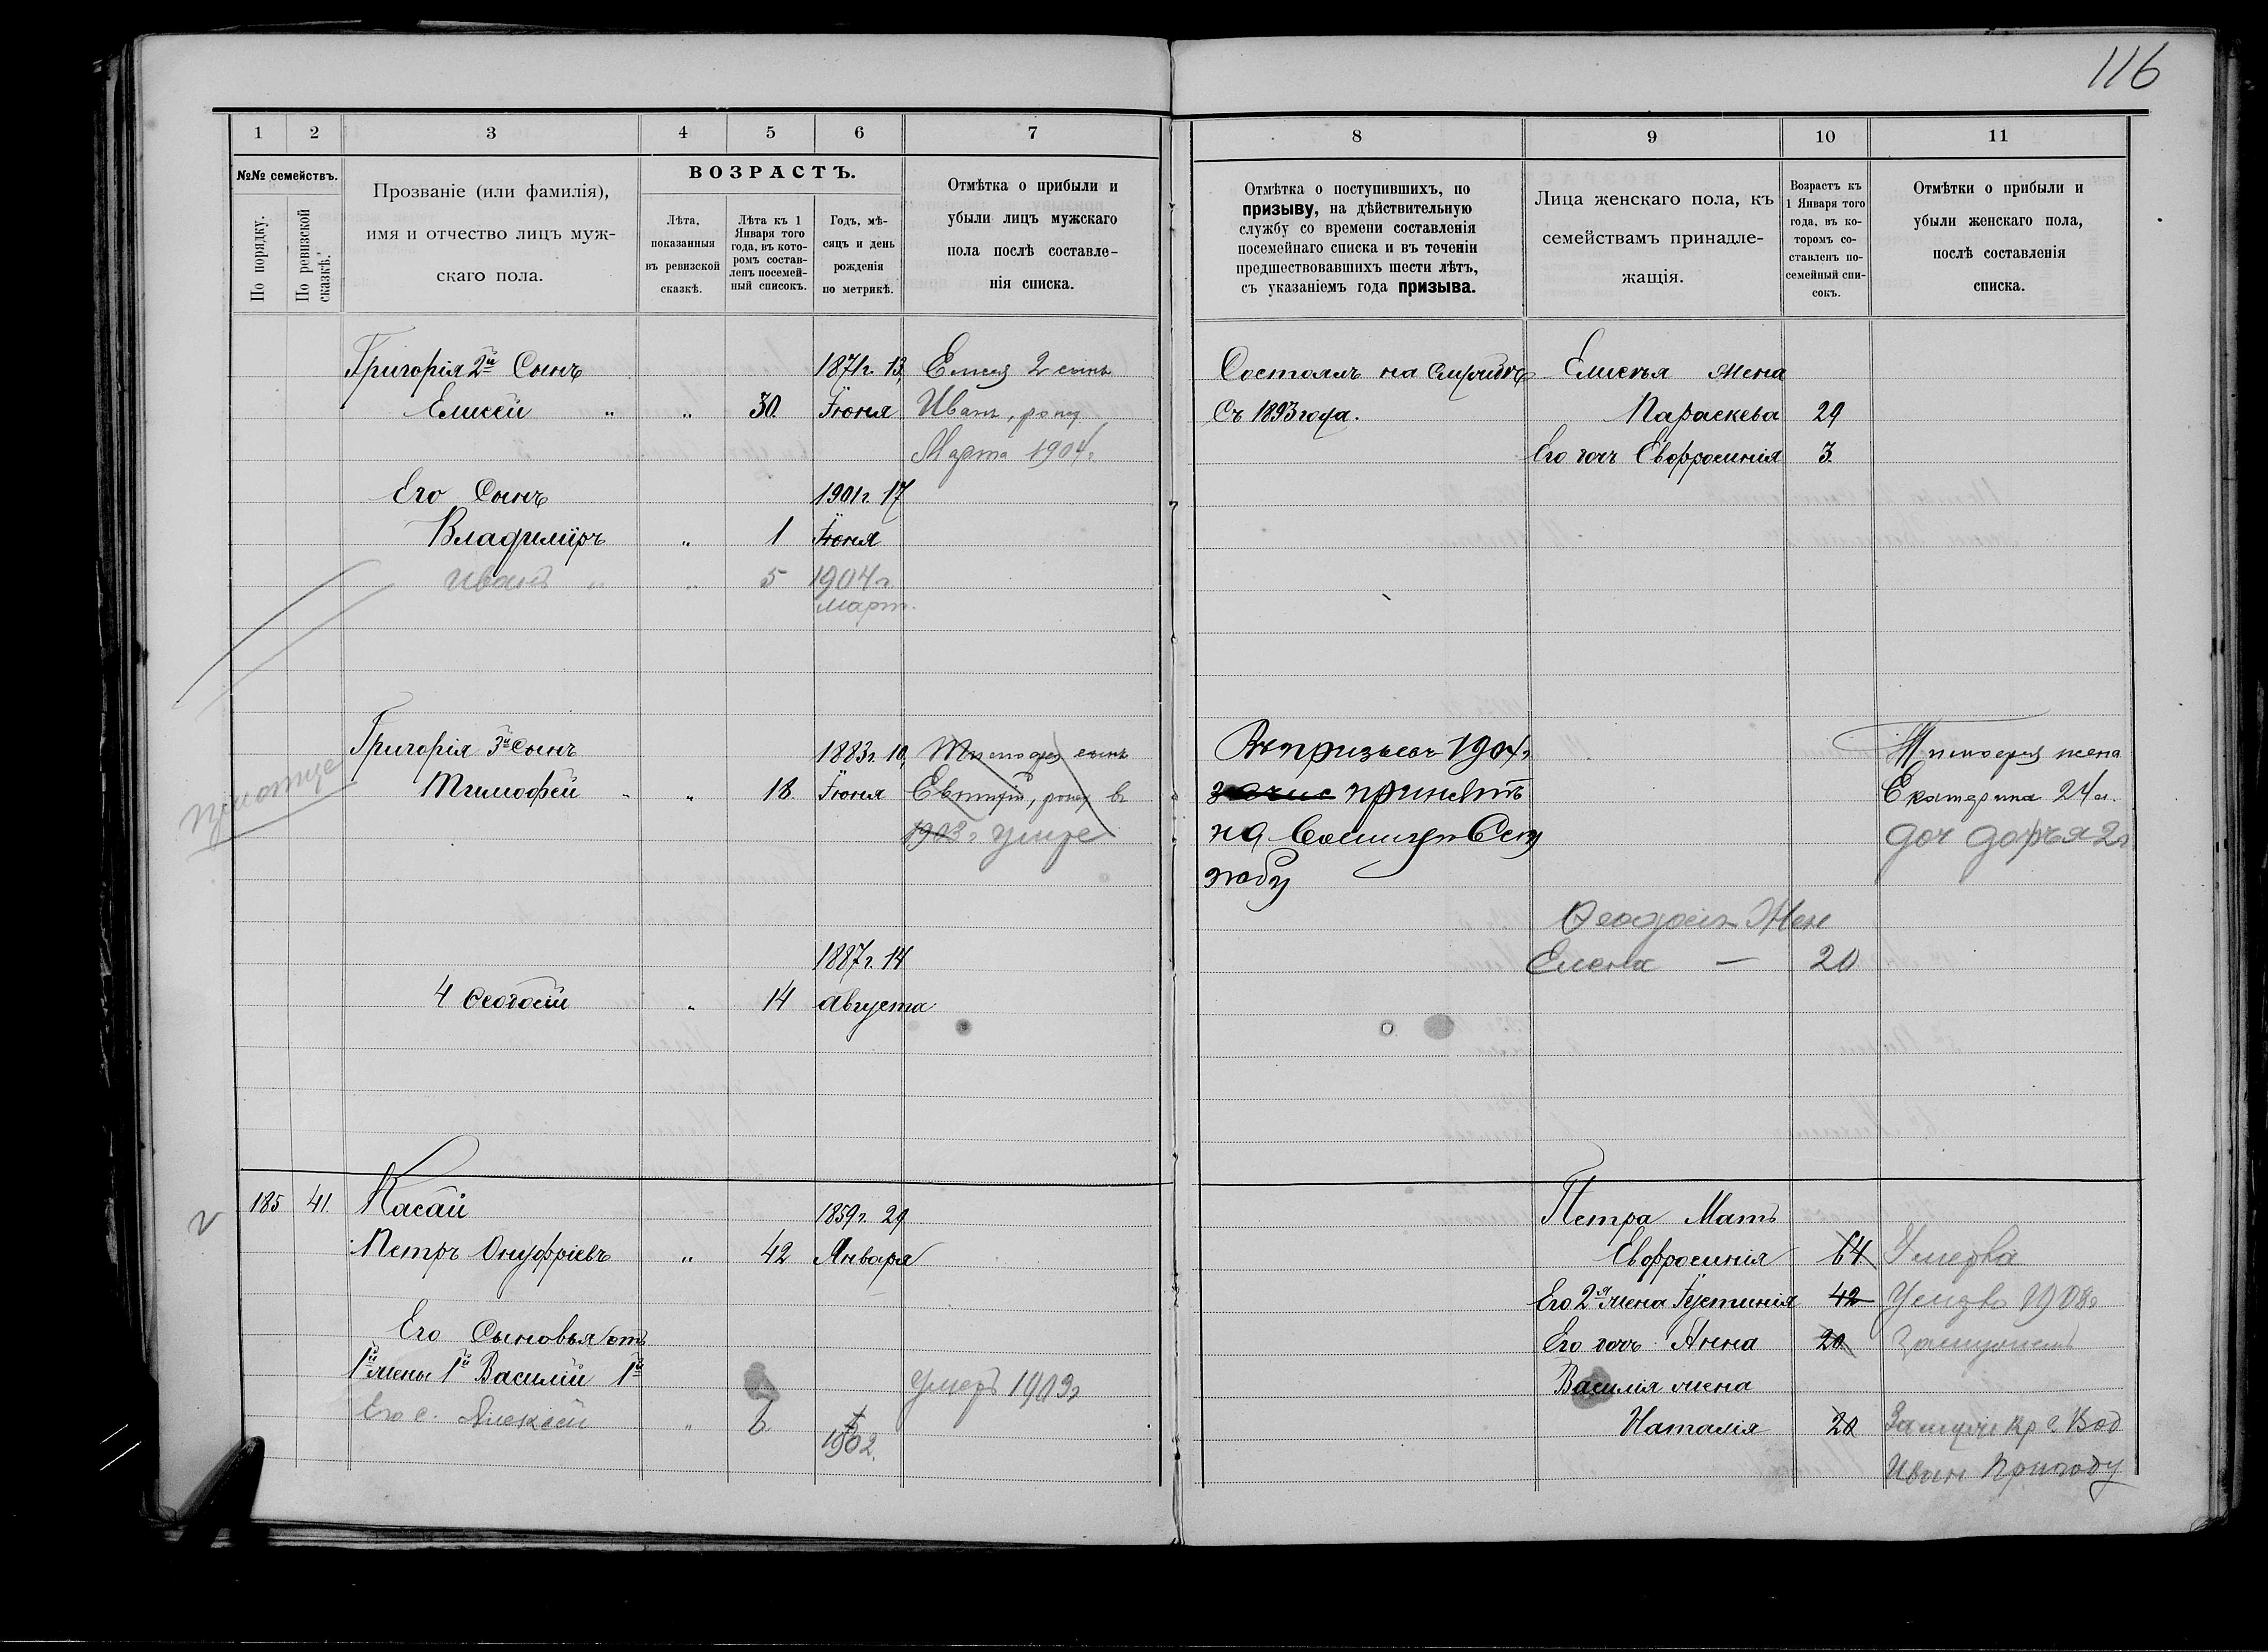 116
1 2 3 4 5 6 7
№№ семействъ.
По порядку.
По ревизской сказкѣ.
Прозваніе (или фамилія),
имя и отчество лицъ муж-
скаго пола.
ВОЗРАСТЪ.
Лѣта,
показанныя
въ ревизской
сказкѣ.
Лѣта къ 1
Января того
года, въ кото-
ромъ состав-
ленъ посемей-
ный списокъ.
Годъ, мѣ-
сяцъ и день
рожденія
по метрикѣ.
Отмѣтка о прибыли и
убыли лицъ мужскаго
пола послѣ составле-
нія списка.
Григорія 2й Сынъ 1871г. 13, Елисея 2 сынъ
Елисей " " 30. Іюня Иванъ,
Марта 1904г
Его Сынъ 1901г. 17
Владиміръ " 1 Іюня
Иванъ " " 5 1904г
март.
Григорія 3й Сынъ 1883г. 10, сынъ
Тимофей " " 18. Іюня Евтихій, въ
1903г умре
1887г. 14
4 Ѳеодосій " 14 Августа
185 41. Касай 1859г. 29
Петръ Онуфріевъ " 42 Января
Его Сыновья отъ
1й жены 1й Василій 1й умеръ 1903г
Его с. Алексѣй " 6 5
1902.
8 9 10 11
Отмѣтка о поступившихъ, по
призыву, на дѣйствительную
службу со времени составленія
посемейнаго списка и въ теченіи
предшествовавшихъ шести лѣтъ,
съ указаніемъ года призыва.
Лица женскаго пола, къ
семействамъ принадле-
жащія.
Возрастъ къ
1 Января того
года, въ ко-
торомъ со-
ставленъ по-
семейный спи-
сокъ.
Отмѣтки о прибыли и
убыли женскаго пола,
послѣ составленія
списка.
Состоялъ на Елисея жена
Съ 1893 года. Параскева 29
Его дочь Евфросинія 3.
1904г Тимофея жена
принятъ Екатерина 24 л.
на Сл доч Дарья 2г
жбу
Ѳеодосія Жен
Елена — 20
Петра Мать
Евфросинія 64 Умерла
Его 2я жена Іустинія 42 1908г
Его дочь Анна 20
Василія жена
Наталія 20 кр с. Вод
Иван Пригоду